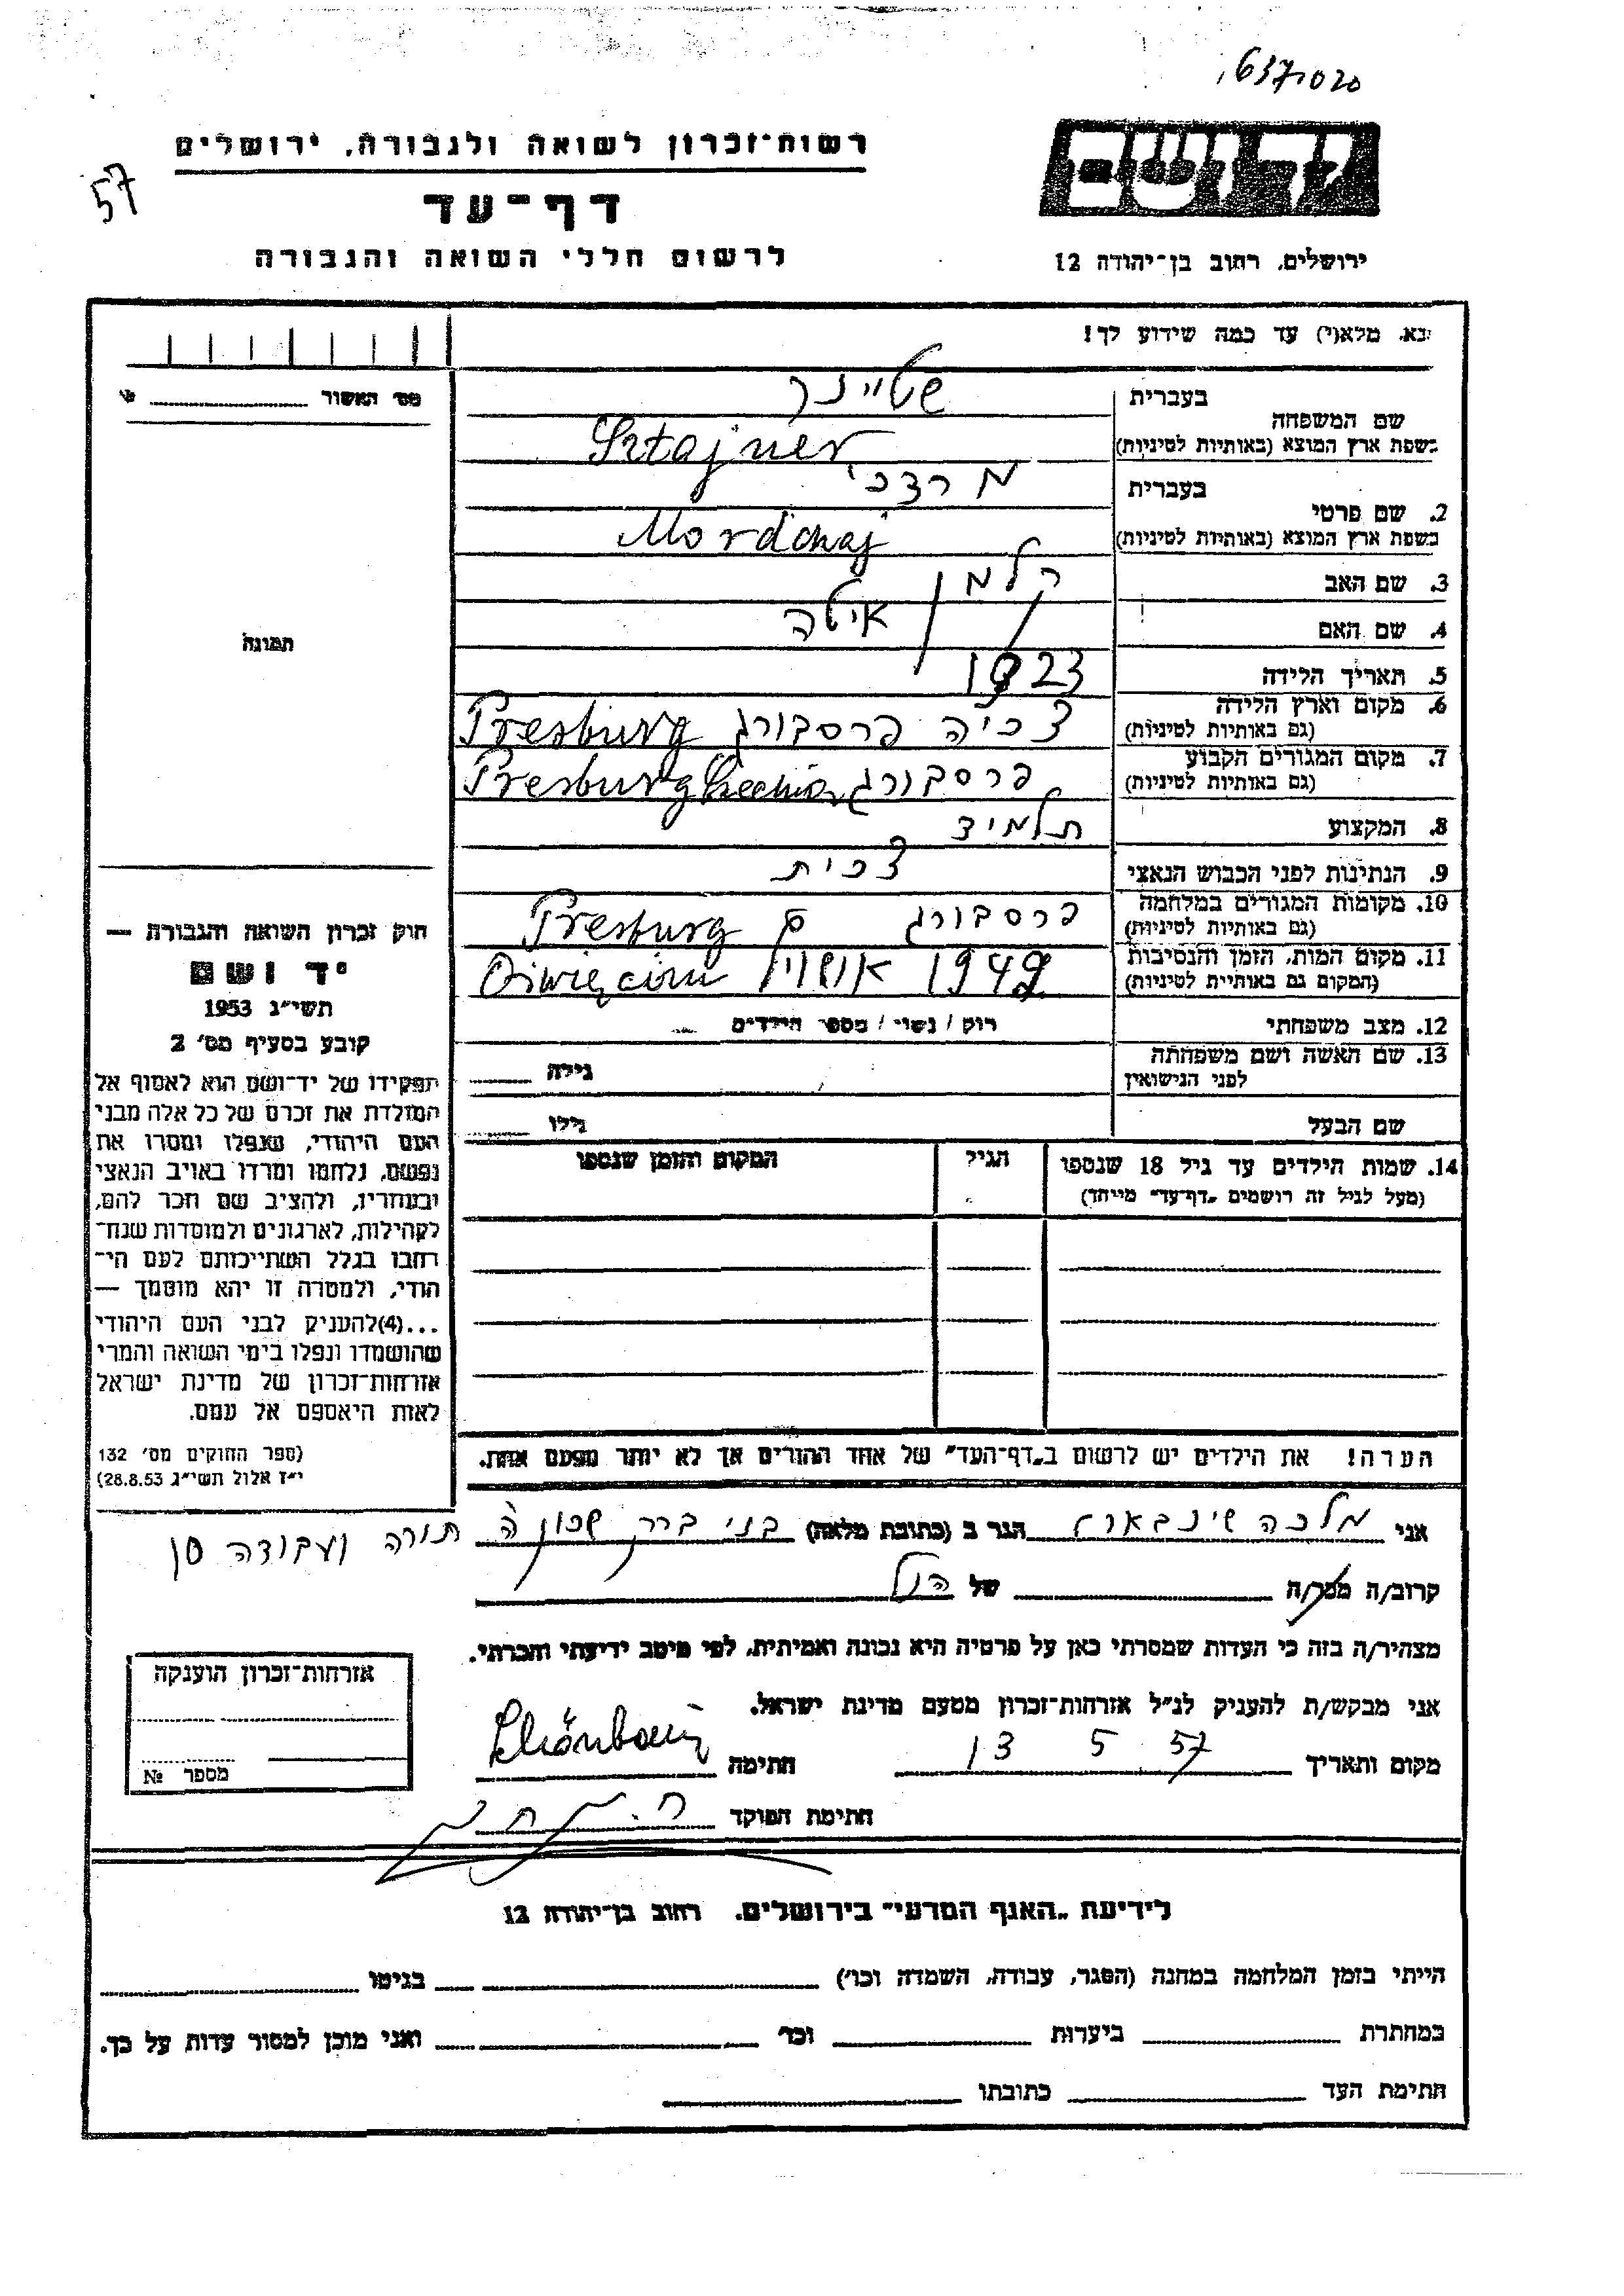 1637,020
57
יד ושם
רשות־זכרון לשואה ולגבורה, ירושלים
דף־עד
לרשום חללי השואה והגבורה
ירושלים, רחוב בן־יהודה 12
נא, מלא(י) עד כמה שידוע לך!
מס׳ האשור
תמונה
בעברית שטיינר
שם המשפחה
בשפת ארץ המוצא (באותיות לטיניות) Sztajner
בעברית מרדכי
2. שם פרטי
בשפת ארץ המוצא (באותיות לטיניות) Mordchaj
3. שם האב קלמן
4. שם האם איטה
5. תאריך הלידה 1923
6. מקום וארץ הלידה צכיה פרסבורג Presburg
(גם באותיות לטיניות)
7. מקום המגורים הקבוע פרסבורג Presburg
(גם באותיות לטיניות)
8. המקצוע תלמיד
9. הנתינות לפני הכבוש הנאצי צכית
10. מקומות המגורים במלחמה פרסבורג Presburg
(גם באותיות לטיניות)
11. מקום המות, הזמן והנסיבות 1942 Oświęcim
(המקום גם באותיות לטיניות)
12. מצב משפחתי רוק / נשוי / מספר הילדים
13. שם האשה ושם משפחתה גילה
לפני הנישואין
שם הבעל גילו
14. שמות הילדים עד גיל 18 שנספו הגיל המקום והזמן שנספו
(מעל לגיל זה רושמים „דף־עד״ מיוחד)
הערה! את הילדים יש לרשום ב„דף־העד״ של אחד ההורים אך לא יותר מפעם אחת.
חוק זכרון השואה והגבורה —
יד ושם
תשי״ג 1953
קובע בסעיף מס׳ 2
תפקידו של יד־ושם הוא לאסוף אל
המולדת את זכרם של כל אלה מבני
העם היהודי, שנפלו ומסרו את
נפשם, נלחמו ומרדו באויב הנאצי
ובעוזריו, ולהציב שם וזכר להם,
לקהילות, לארגונים ולמוסדות שנח־
רבו בגלל השתייכותם לעם הי־
הודי, ולמטרה זו יהא מוסמך —
...(4)להעניק לבני העם היהודי
שהושמדו ונפלו בימי השואה והמרי
אזרחות־זכרון של מדינת ישראל
לאות היאספם אל עמם.
(ספר החוקים מס׳ 132
י״ז אלול תשי״ג 28.8.53)
אני מלכה שינבארג הגר ב (כתובת מלאה) בני ברק שכון ה תורה ועבודה
קרוב/ה מכר/ה של הנ״ל
מצהיר/ה בזה כי העדות שמסרתי כאן על פרטיה היא נכונה ואמיתית, לפי מיטב ידיעתי והכרתי.
אני מבקש/ת להעניק לנ״ל אזרחות־זכרון מטעם מדינת ישראל.
מקום ותאריך 13 5 57 חתימה
חתימת הפוקד
אזרחות־זכרון הוענקה
מספר №
לידיעת „האגף המדעי״ בירושלים, רחוב בן־יהודה 12
הייתי בזמן המלחמה במחנה (הסגר, עבודה, השמדה וכו׳) בגיטו
במחתרת ביערות וכו׳ ואני מוכן למסור עדות על כך.
חתימת העד כתובתו